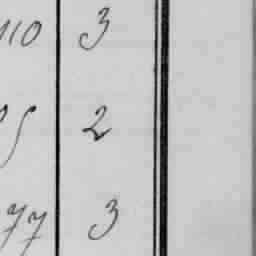 110 3
5 2
77 3